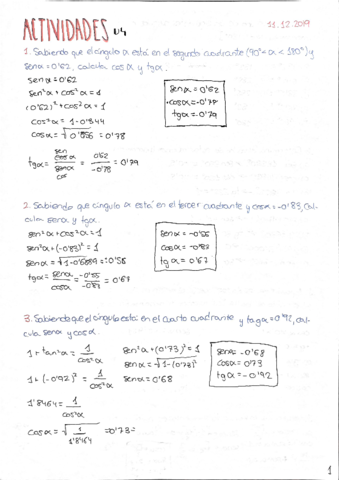 ACTIVIDADES U4
11.12.2019
1. Sabiendo que el ángulo α está en el segundo cuadrante (90° < α < 180°) y
senα = 0'62, calcula cosα y tgα.
senα = 0'62
sen²α + cos²α = 1
(0'62)² + cos²α = 1
cos²α = 1 - 0'3844
cosα =
= 0'78
senα = 0'62
cosα = -0'78
tgα = -0'79
tgα = senα/cosα = 0'62/-0'78 = 0'79
2. Sabiendo que ángulo α está en el tercer cuadrante y cosα = -0'83, cal-
cula senα y tgα.
sen²α + cos²α = 1
sen²α + (-0'83)² = 1
senα = √1-0'6889 = 0'56
tgα = senα/cosα = -0'55/-0'83 = 0'67
senα = -0'56
cosα = -0'83
tgα = 0'67
3. Sabiendo que el ángulo está en el cuarto cuadrante y tagα = -0'92, cal-
cula senα y cosα.
1 + tan²α = 1/cos²α
1 + (-0'92)² = 1/cos²α
1'8464 = 1/cos²α
cosα = √1/1'8464 = 0'73
sen²α + (0'73)² = 1
senα = √1-(0'73)²
senα = 0'68
senα = -0'68
cosα = 0'73
tgα = -0'92
1